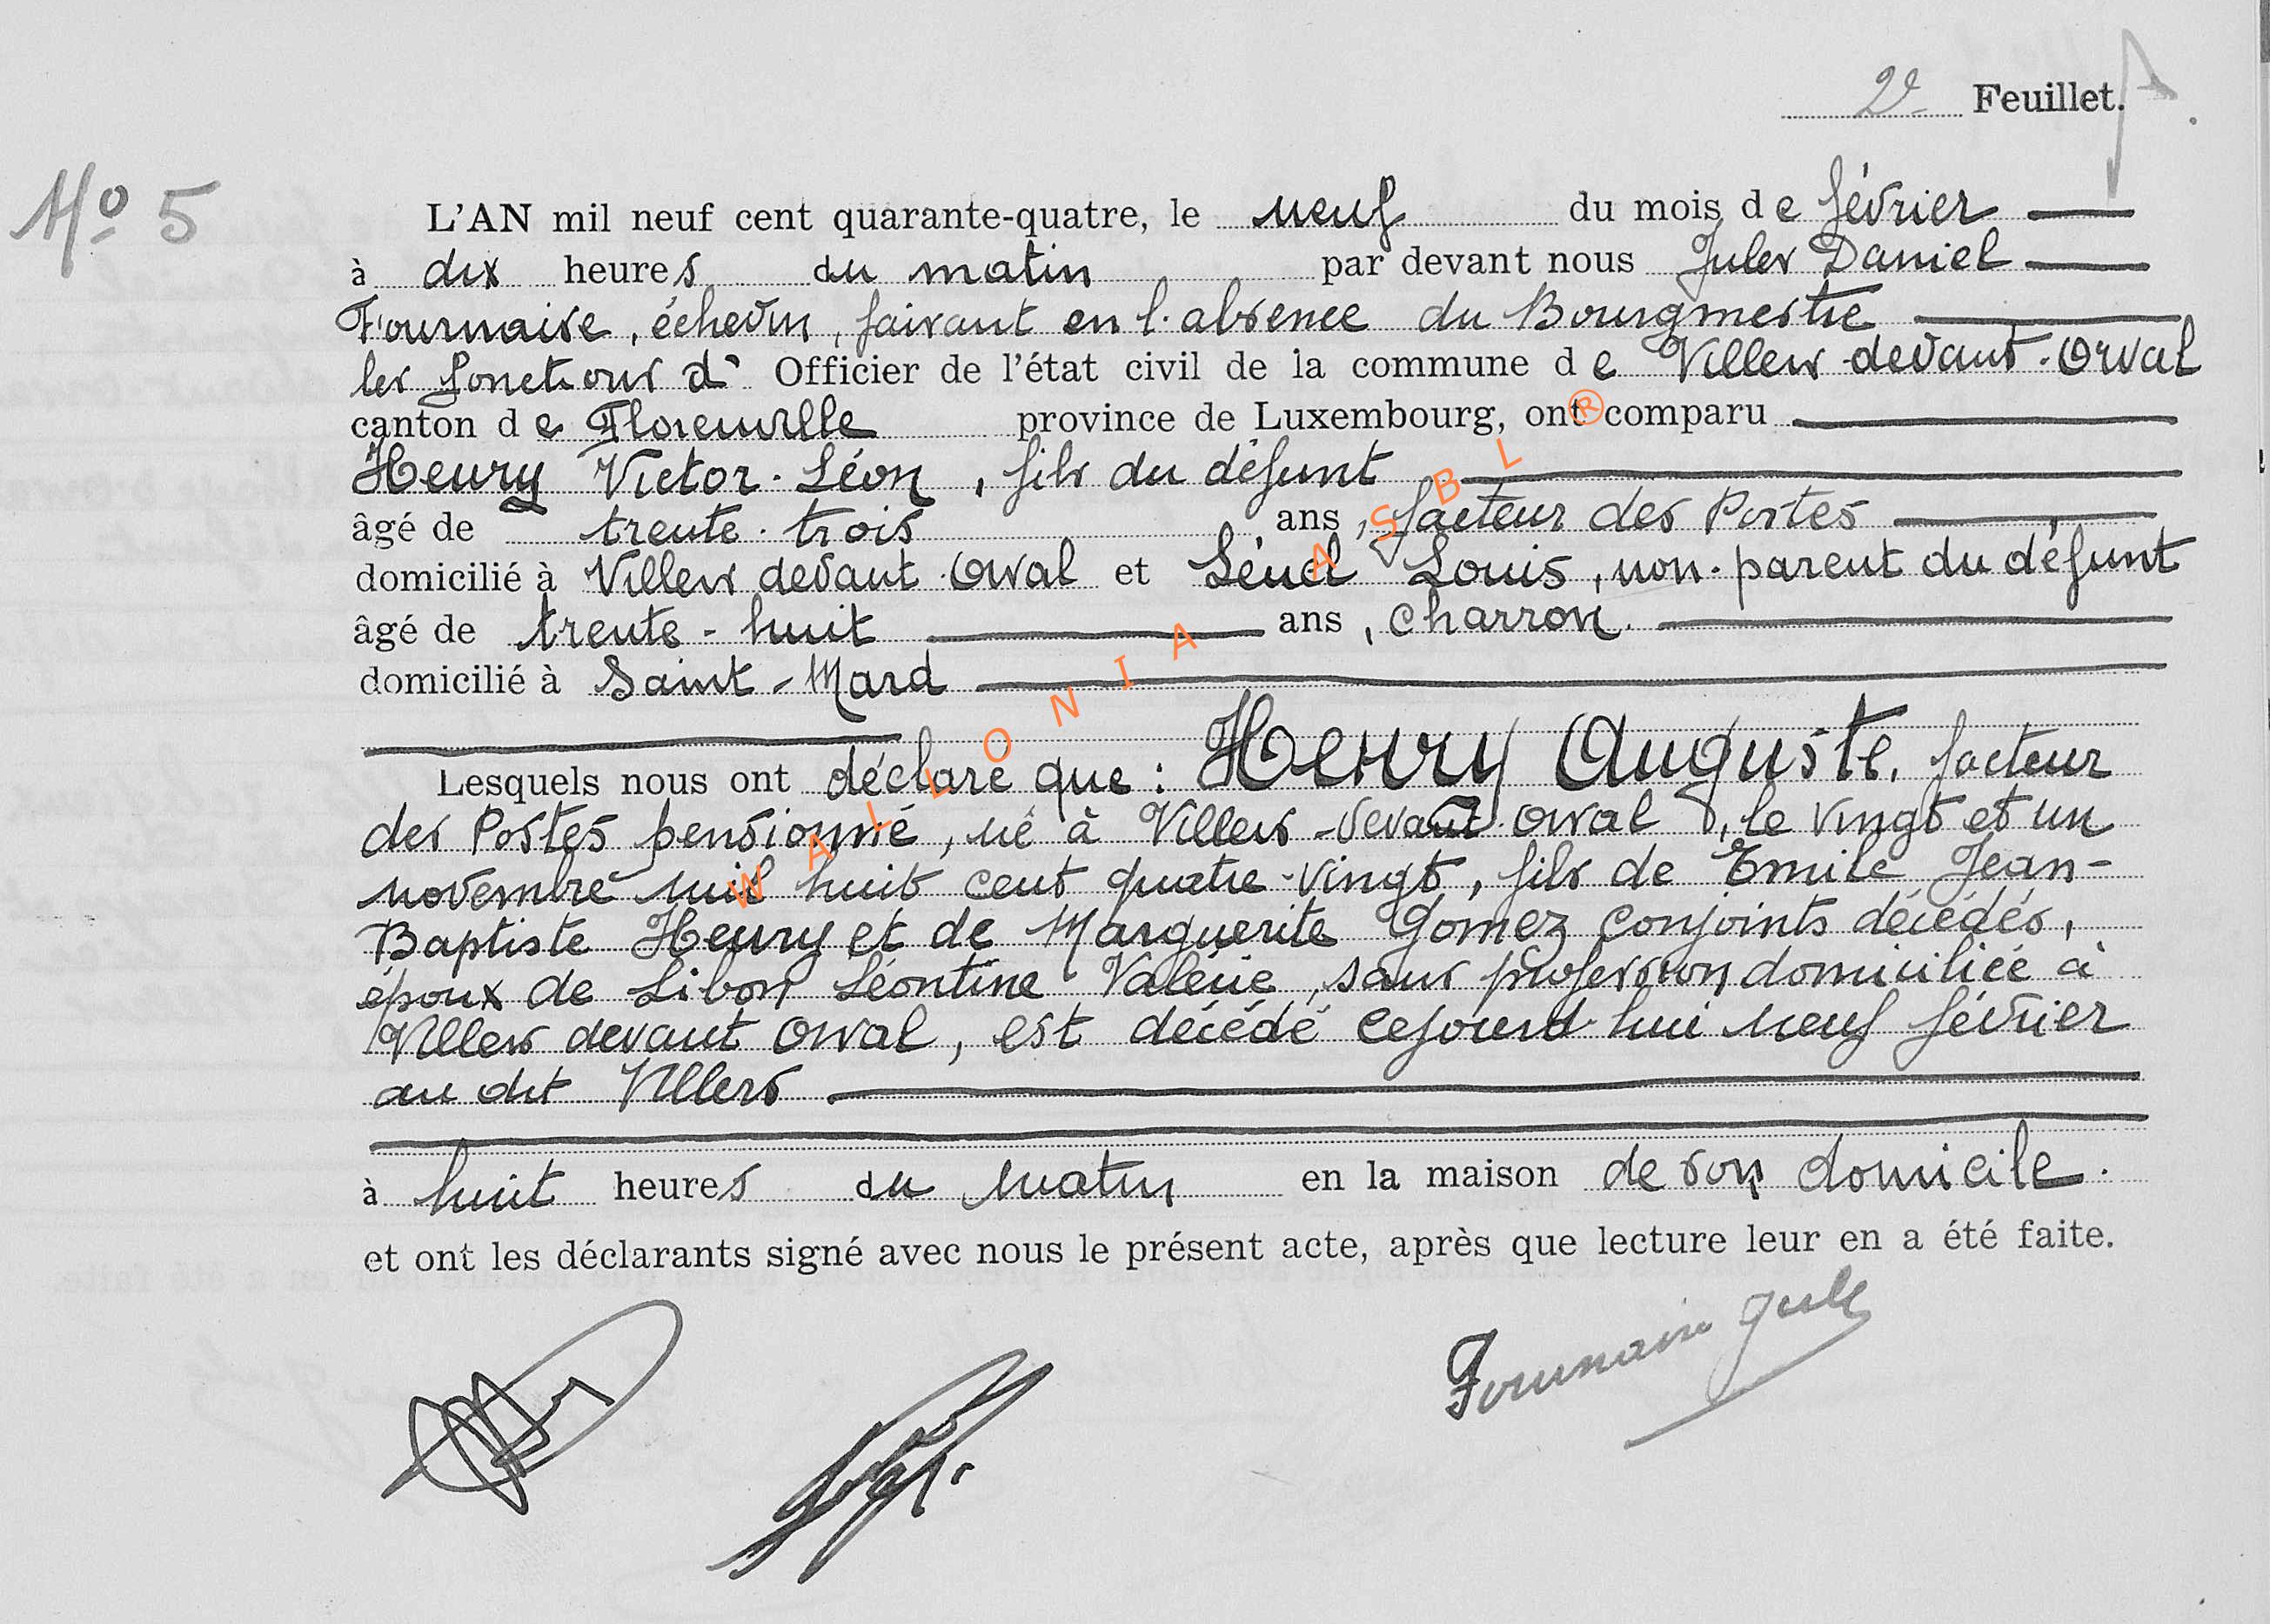 2e Feuillet.
No 5
L'AN mil neuf cent quarante-quatre, le neuf du mois de février
à dix heures du matin par devant nous Jules Daniel
Fournaise, échevin, faisant en l'absence du Bourgmestre
les fonctions d' Officier de l'état civil de la commune de Villers-devant-Orval
canton de Florenville province de Luxembourg, ont comparu
Henry Victor-Léon, fils du défunt
âgé de trente-trois ans, facteur des Postes
domicilié à Villers devant Orval et Louis, non-parent du défunt
âgé de trente-huit ans, charron.
domicilié à Saint-Mard
Lesquels nous ont déclaré que : Henry Auguste, facteur
des Postes pensionné, né à Villers-devant Orval, le vingt et un
novembre mil huit cent quatre-vingt, fils de Emile Jean-
Baptiste Henry et de Marguerite Gomez conjoints décédés,
époux de Libon Léontine Valérie, sans profession domiciliée à
Villers devant Orval, est décédé cejourd'hui neuf février
au dit Villers
à huit heures du matin en la maison de son domicile.
et ont les déclarants signé avec nous le présent acte, après que lecture leur en a été faite.
WALLONIA ASBL ®